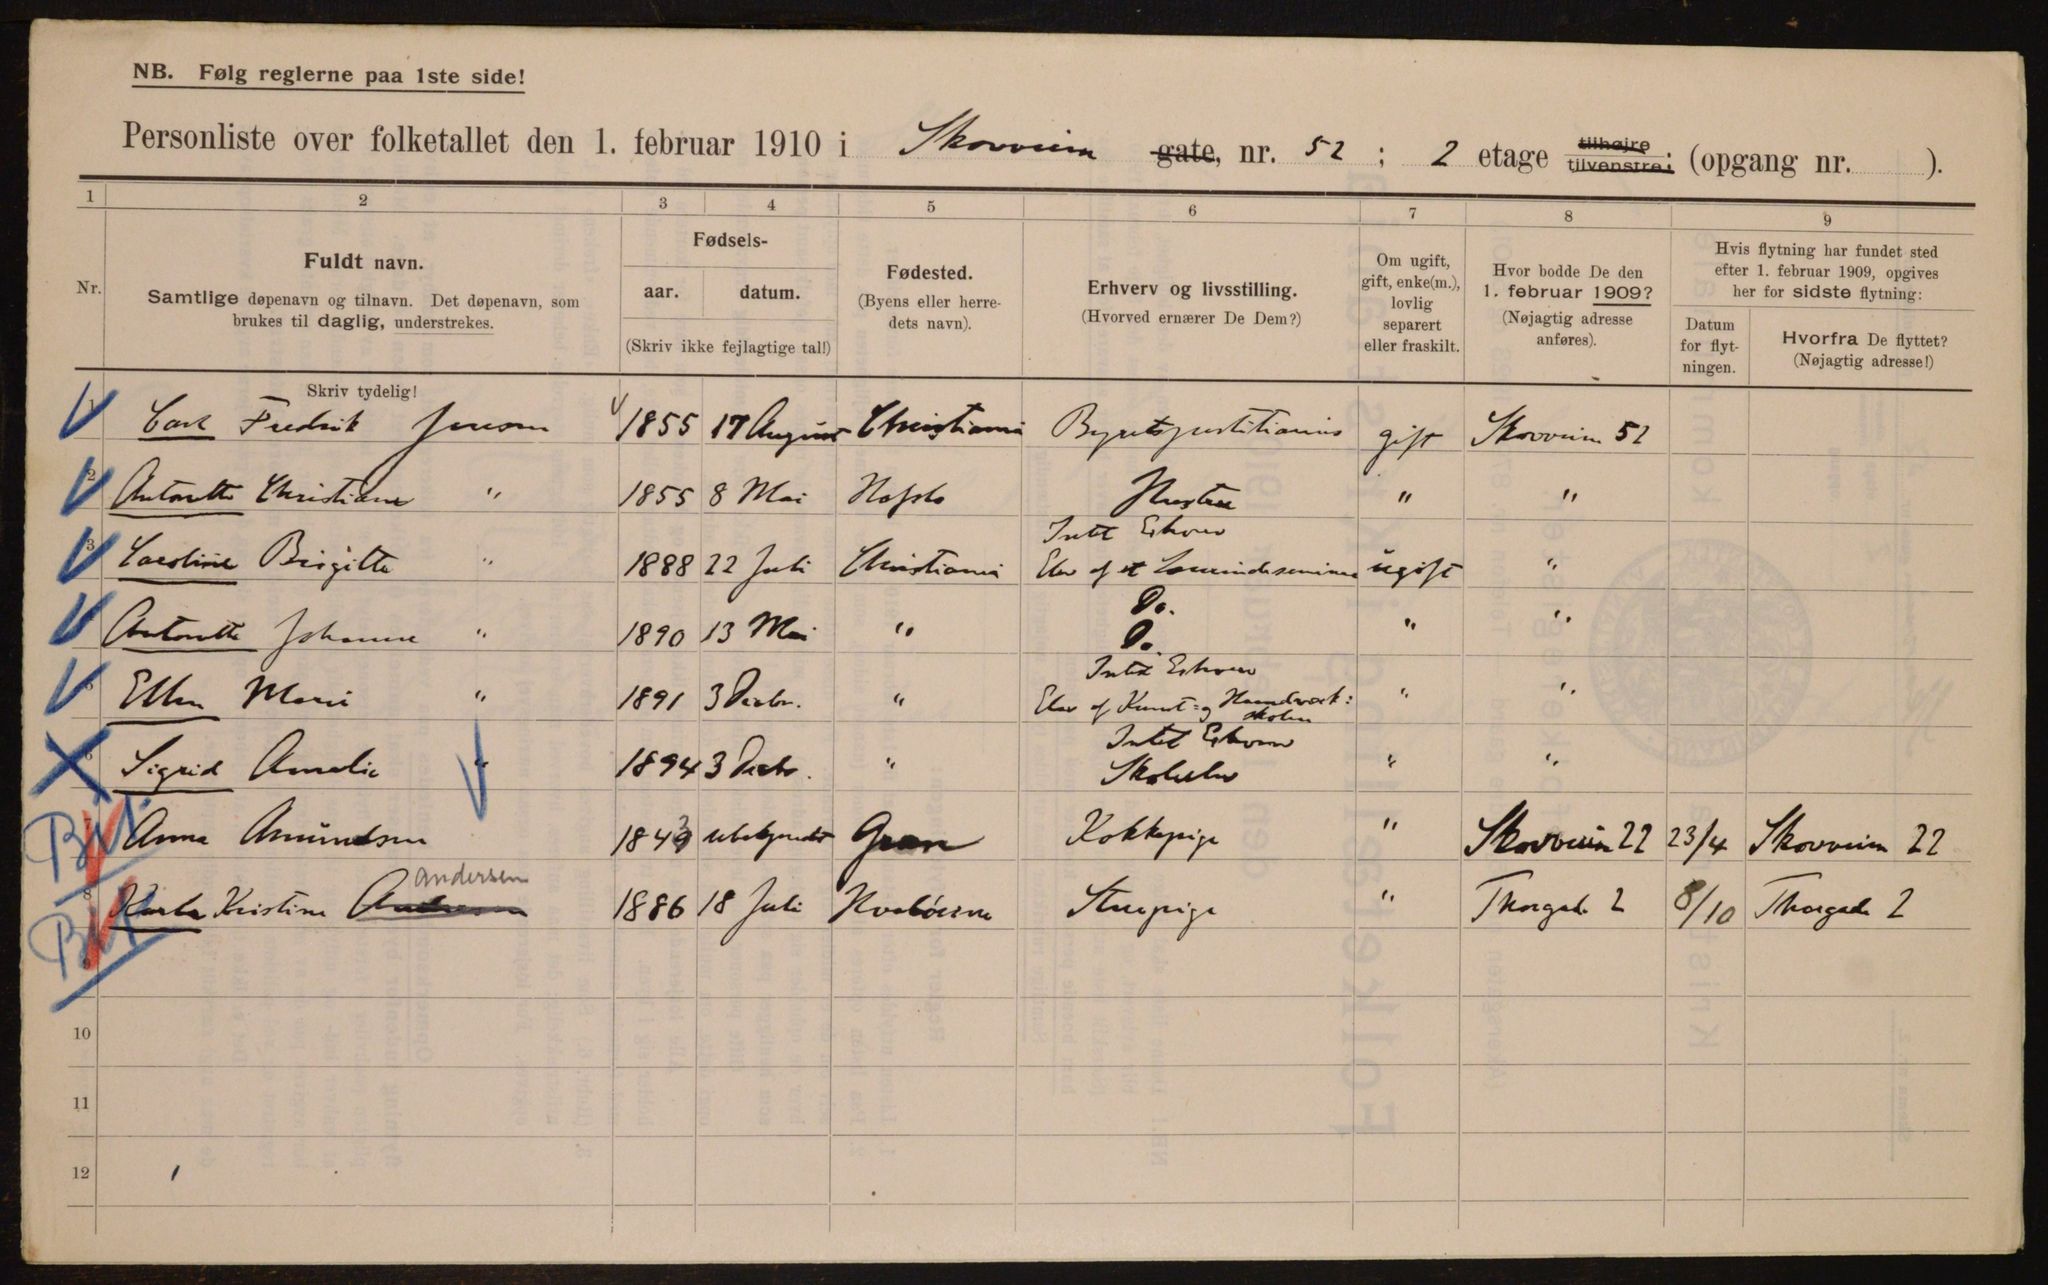 NB. Følg reglerne paa 1ste side!
Personliste over folketallet den 1. februar 1910 i Skovveien gate, nr. 52 ; 2 etage tilhøjre tilvenstre; (opgang nr. ).
1 2 3 4 5 6 7 8 9
Nr.
Fuldt navn.
Samtlige døpenavn og tilnavn. Det døpenavn, som
brukes til daglig, understrekes.
Fødsels-
aar. datum.
(Skriv ikke fejlagtige tal!)
Fødested.
(Byens eller herre-
dets navn).
Erhverv og livsstilling.
(Hvorved ernærer De Dem?)
Om ugift,
gift, enke(m.),
lovlig
separert
eller fraskilt.
Hvor bodde De den
1. februar 1909?
(Nøjagtig adresse
anføres).
Hvis flytning har fundet sted
efter 1. februar 1909, opgives
her for sidste flytning:
Datum
for flyt-
ningen.
Hvorfra De flyttet?
(Nøjagtig adresse!)
Skriv tydelig!
1 Carl Fredrik Jensen 1855 17 August Christiania Byretsjustitiarius gift Skovveien 52
2 Antonette Christiane " 1855 8 Mai Hafslo Hustru " "
3 Caroline Birgitte " 1888 22 Juli Christiania Intet Erhverv
Elev af et Lærerindeseminar ugift "
Do.
4 Antonette Johanne " 1890 13 Mai " Do. " "
5 Ellen Marie " 1891 3 Decbr. " Intet Erhverv
Elev af Kunst- og Haandværk:
skolen " "
6 Sigrid Amalie " 1894 3 Decbr. " Intet Erhverv
Skoleelev " "
7 Anna Amundsen 1843 ubekjendt Gran Kokkepige " Skovveien 22 23/4 Skovveien 22
Andersen
8 Karla Kristine 1886 18 Juli Hvaløerne Stuepige " Thorgade 2 8/10 Thorgade 2
9
10
11
12